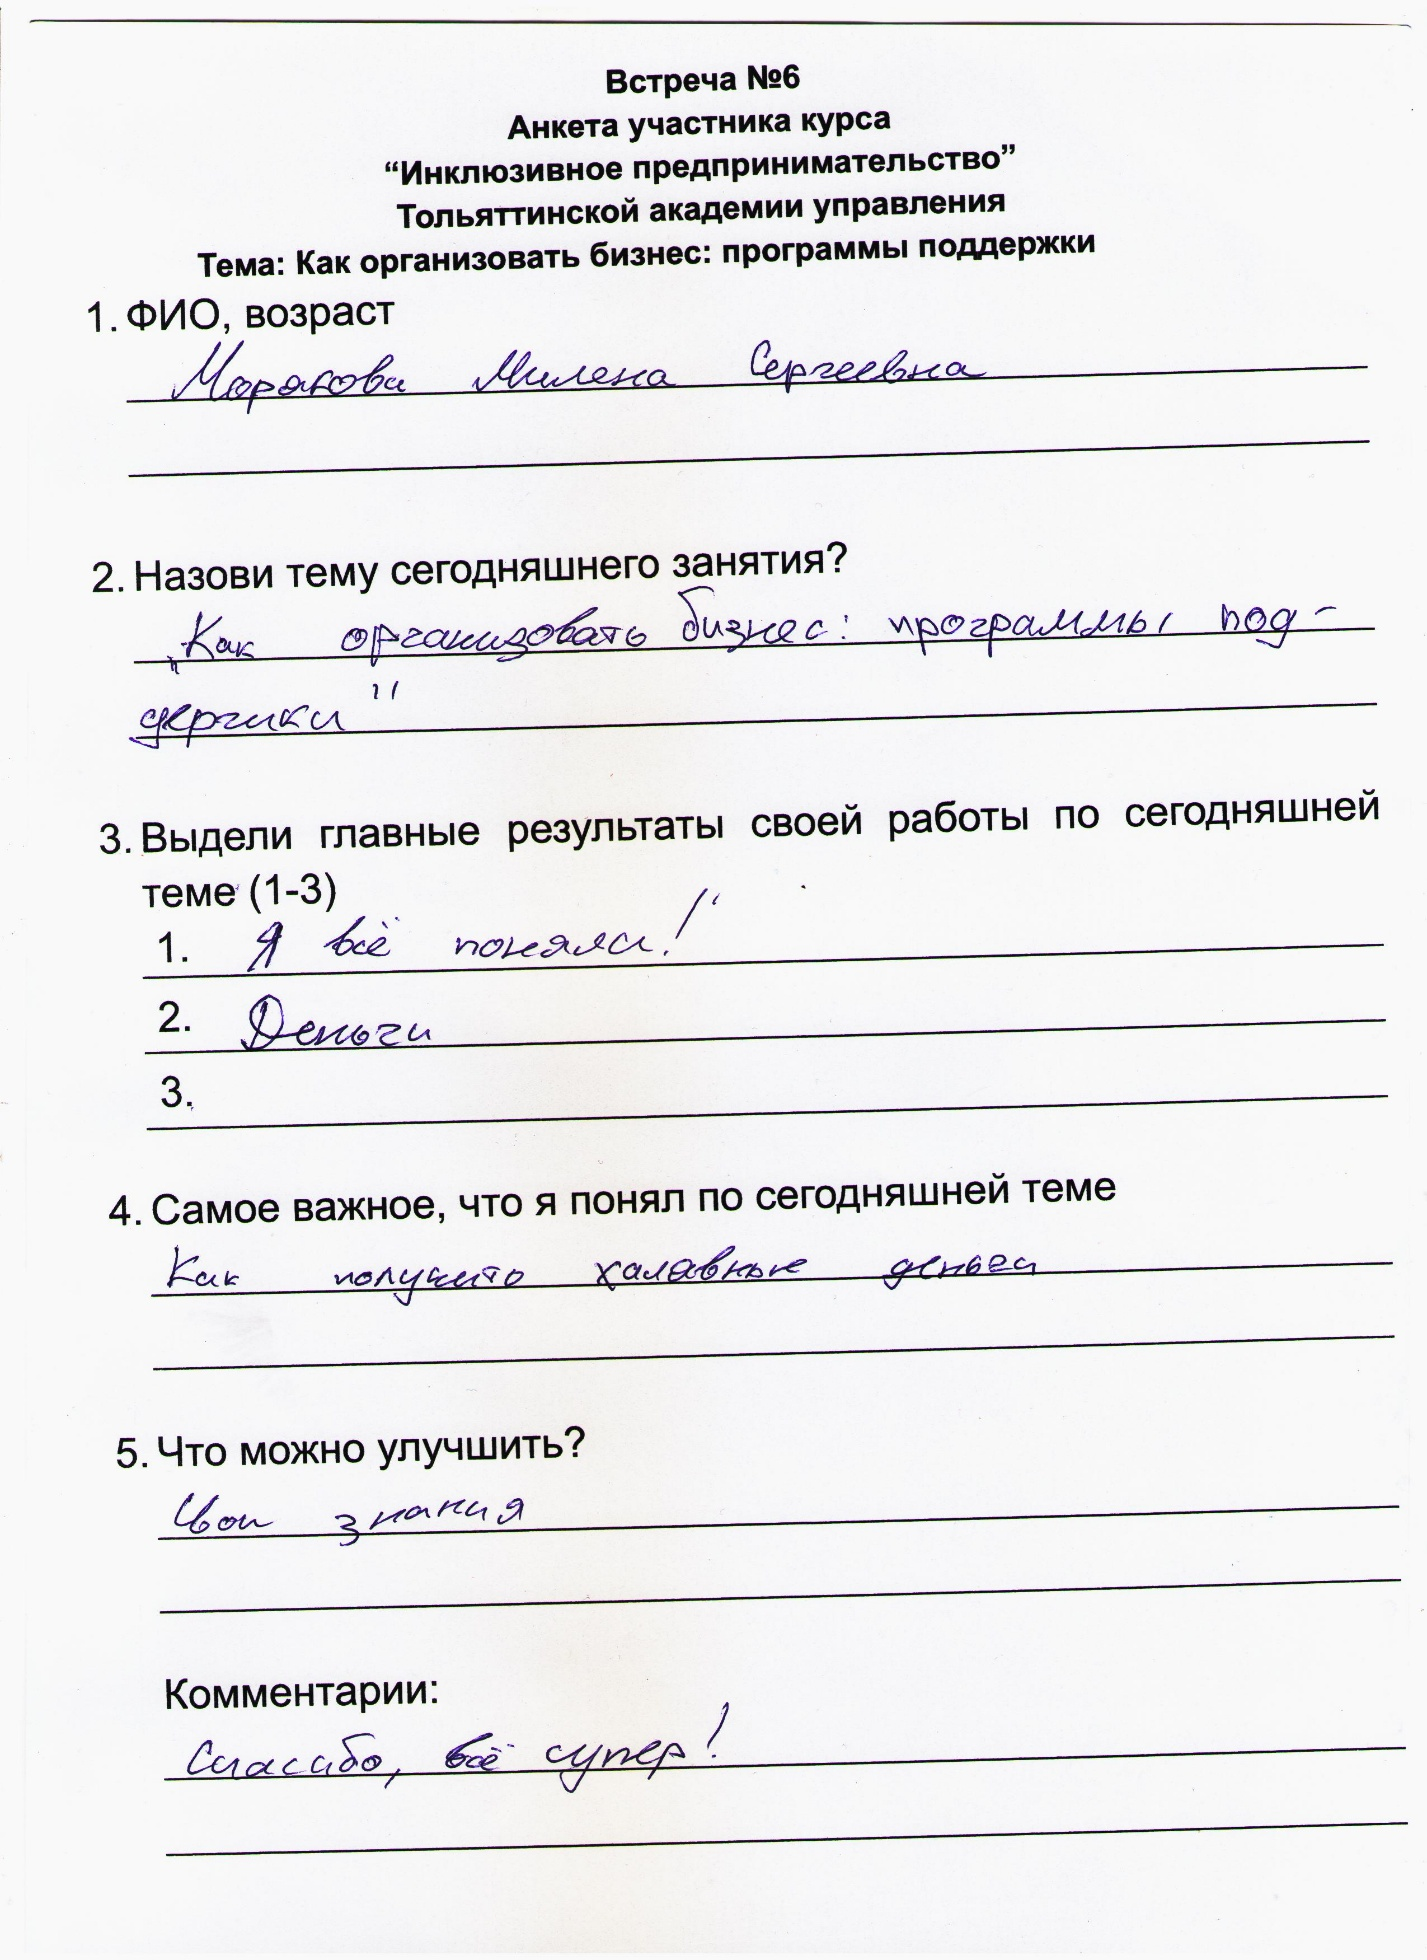 Встреча №6
Анкета участника курса
“Инклюзивное предпринимательство”
Тольяттинской академии управления
Тема: Как организовать бизнес: программы поддержки
1. ФИО, возраст
Морякова Милена Сергеевна
2. Назови тему сегодняшнего занятия?
„Как организовать бизнес: программы под-
держики"
3. Выдели главные результаты своей работы по сегодняшней
теме (1-3)
1. Я всё поняла!
2. Деньги
3.
4. Самое важное, что я понял по сегодняшней теме
Как получить халявные деньги
5. Что можно улучшить?
Свои знания
Комментарии:
Спасибо, всё супер!